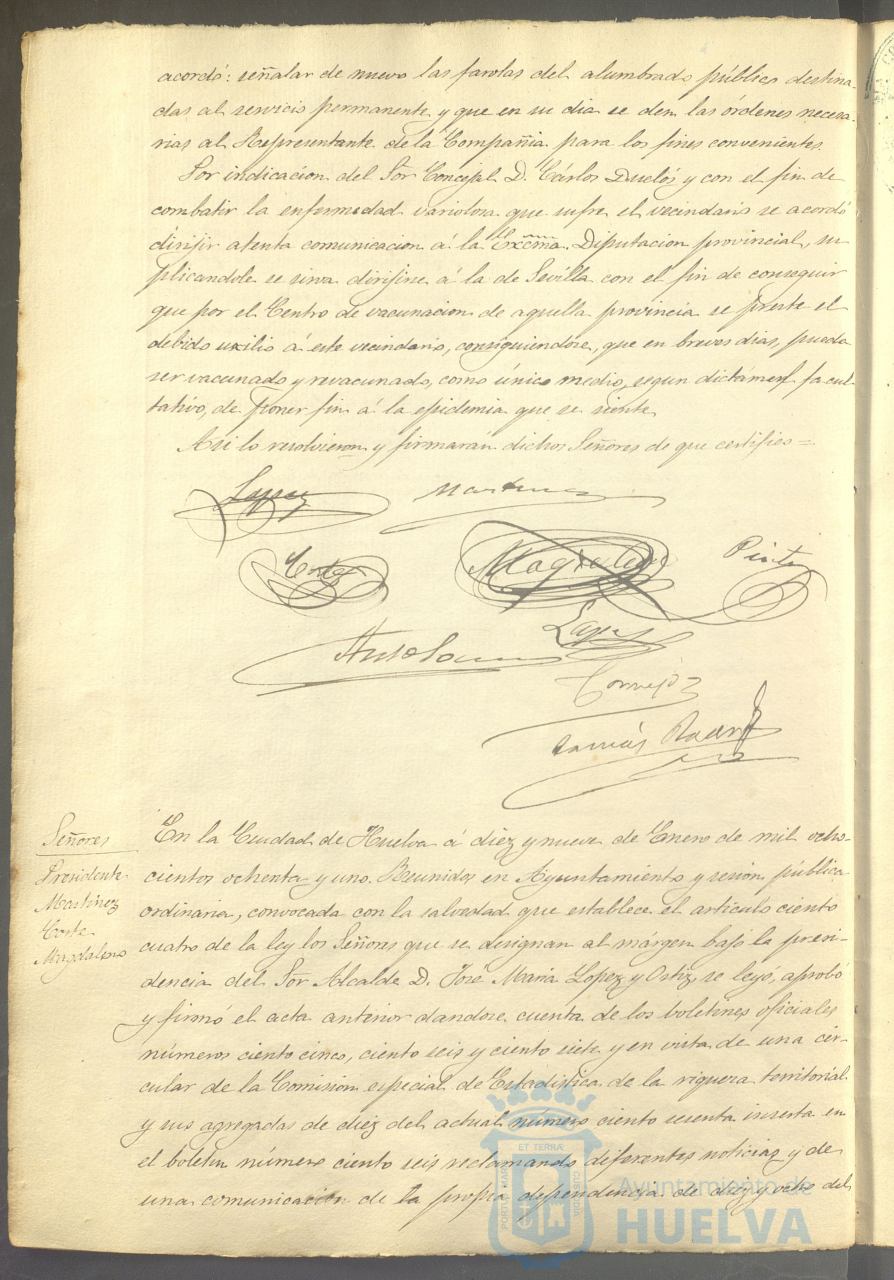 acordó: señalar de nuevo las farolas del alumbrado público destina-
das al servicio permanente y que en su dia se den las órdenes necesa-
rias al Representante de la Compañia para los fines convenientes.
Por indicacion del Sor Concejal D. Cárlos Duclós y con el fin de
combatir la enfermedad variolosa que sufre el vecindario se acordó
dirijir atenta comunicacion á la Excma. Diputacion provincial, su
plicandole se sirva dirijirse á la de Sevilla con el fin de conseguir
que por el Centro de vacunacion de aquella provincia se preste el
debido uxilio á este vecindario, consiguiendose, que en breves dias, pueda
ser vacunado y revacunado, como único medio, segun dictámen facul-
tativo, de poner fin á la epidemia que se siente.
Asi lo resolvieron y firmarán dichos Señores de que certifico=
Lopez Martinez
Corte Magdaleno
Lopez
Cornejo
Tomás
Señores
Presidente
Martinez
Corte
Magdaleno
En la Ciudad de Huelva á diez y nueve de Enero de mil ocho-
cientos ochenta y uno. Reunidos en Ayuntamiento y sesion pública
ordinaria, convocada con la salvedad que establece el articulo ciento
cuatro de la ley los Señores que se designan al márgen bajo la presi-
dencia del Sor Alcalde D. José Maria Lopez y Ortiz, se leyó, aprobó
y firmó el acta anterior dandose cuenta de los boletines oficiales
números ciento cinco, ciento seis y ciento siete y en vista de una cir-
cular de la Comision especial de Estadistica de la riqueza territorial
y sus agregadas de diez del actual número ciento sesenta inserta en
el boletin número ciento seis reclamando diferentes noticias y de
una comunicacion de la propia dependencia de diez y ocho del
ET TERRÆ
PORTUS MARIS
CUSTODIA
Ayuntamiento de
HUELVA